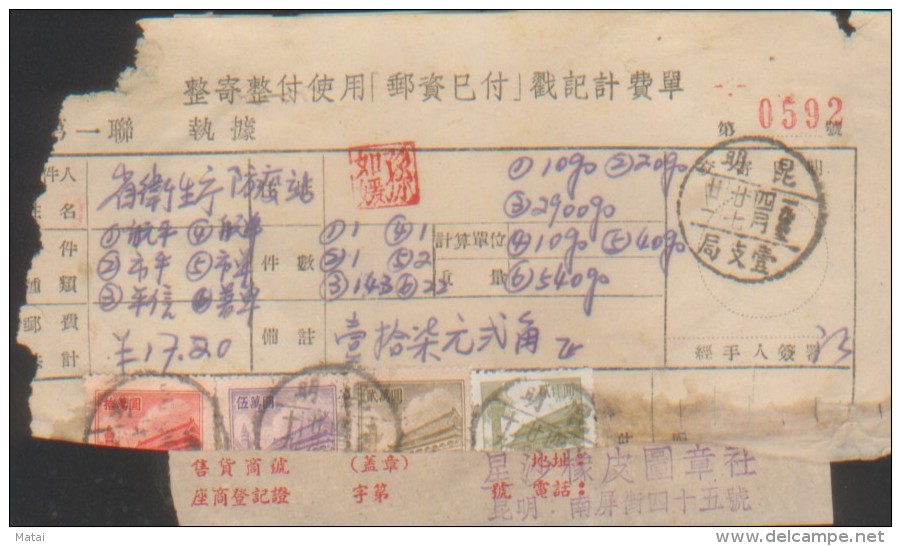 整寄整付使用「郵資已付」戳記計費單
一聯 執據 第 0592 號
件人
姓名
省衛生厅防疫站
如
①航平 ④航单
②市平 ⑤市单
③平信 ⑥普单
件
種類
件數
①1 ④1
②1 ⑤2
③143 ⑥22
計算單位
重量
①10g ②20g
③2900g
④10g ⑤40g
⑥540g
昆明
四月
廿七
廿一
壹支局
郵費
共計
¥17.20
備註
壹拾柒元弍角
經手人簽
拾萬圓
伍萬圓
貳萬圓
貳佰圓
售貨商號 (蓋章) 地址:
座商登記證 字第 號 電話:
星 橡皮圖章社
昆明:南屏街四十五號
Matai
delcampe.net